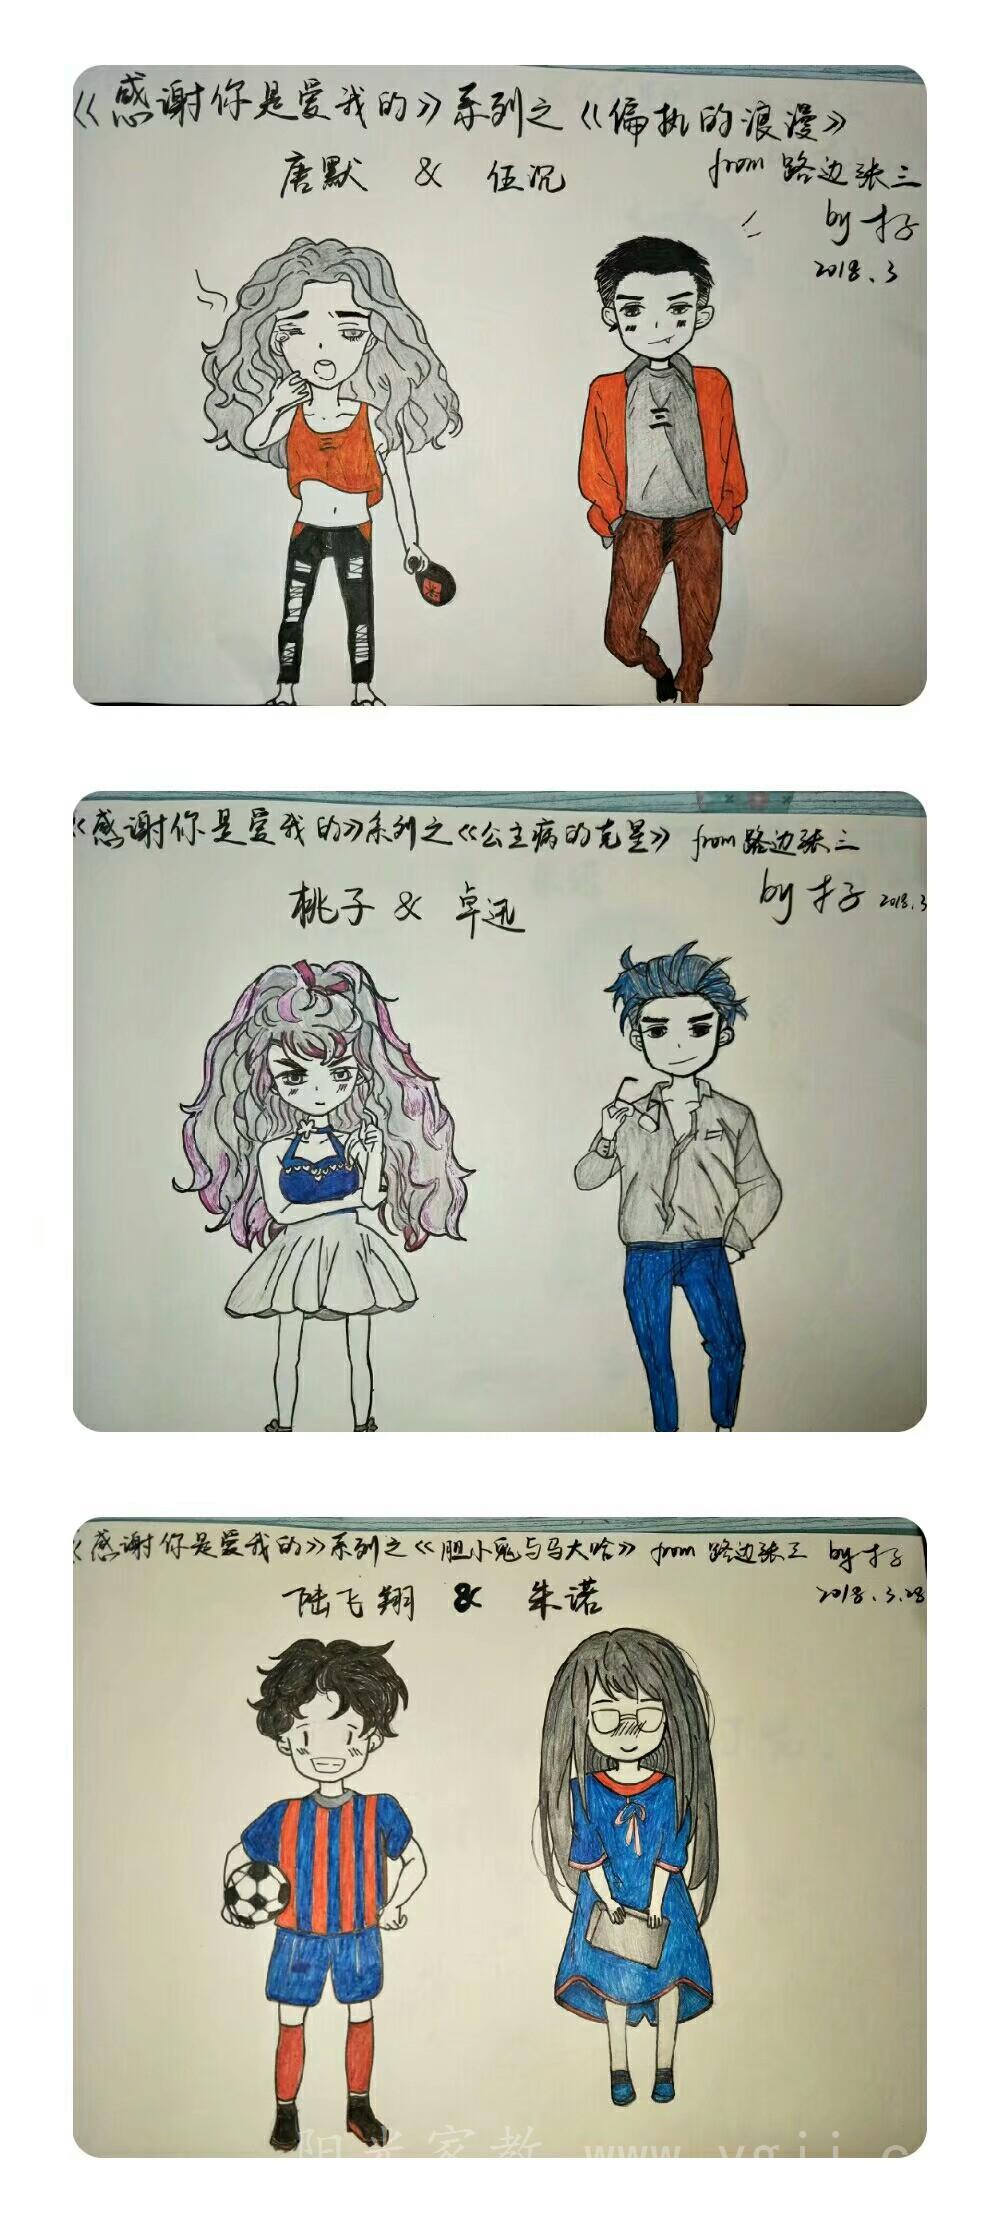 《感谢你是爱我的》系列之《偏执的浪漫》
唐默 & 伍沉 from 路边张三
by 才子
2018.3
三
三
《感谢你是爱我的》系列之《公主病的克星》 from 路边张三
桃子 & 卓迅 by 才子 2018.3
《感谢你是爱我的》系列之《胆小鬼与马大哈》 from 路边张三 by 才子
陆飞翔 & 朱诺 2018.3.28
阳光家教 www.ygjj.c